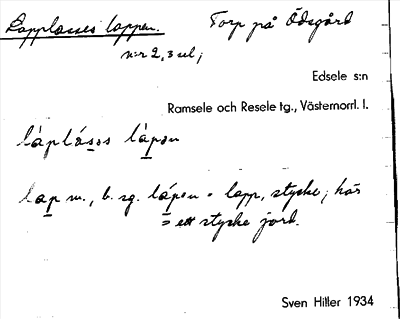 Lapplasses lappen. Torp på Ödsgård
n:r 2, 3 sel;
Edsele s:n
Ramsele och Resele tg., Västernorrl. l.
láplásəs lápən
lap m., b. sg. lápən = lapp, stycke; här
= ett stycke jord.
Sven Hitler 1934